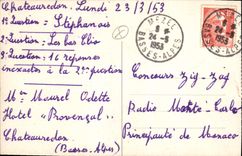 Chateauredon. Lundi 23/3/53
1re Question: Stéphanois
2e Question: Les bas Clio
3e Question: 16 réponses
inexactes à la 2e question
Mme Maurel Odette
Hôtel "Provençal"
Chateauredon
(Basses Alpes)
MEZEL
24-3
1953
BASSES-ALPES
Concours Zig-Zag
Radio Monte-Carlo
Principauté de Monaco